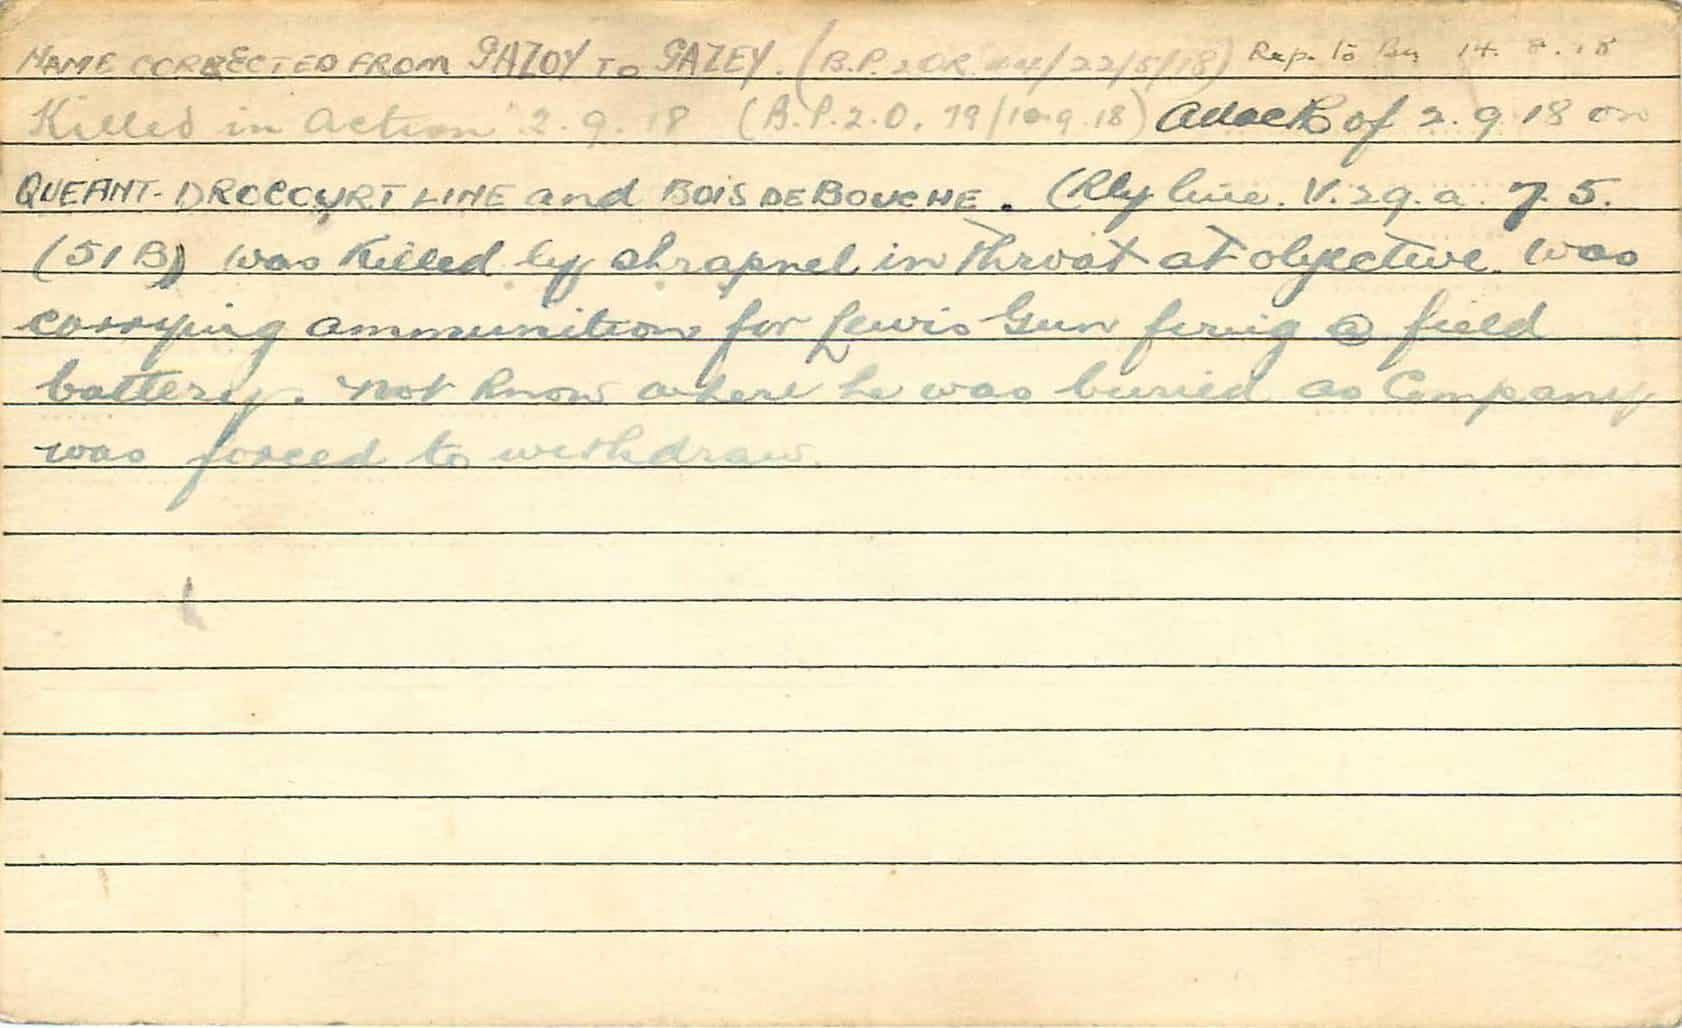 NAME CORRECTED FROM GAZOY TO GAZEY. (B.P. 2 OR. 44/22/5/18) Rep. to Bn 14.8.18
Killed in Action 2.9.18 (B.P.2.O. 79/10.9.18) Attack of 2.9.18 on
QUEANT-DROCOURT LINE and BOIS DE BOUCHE. (Rly line. V.29.a. 7.5.
(51B)) was killed by shrapnel in throat at objective. Was
carrying ammunition for Lewis Gun firing @ field
battery. Not know where he was buried as Company
was forced to withdraw.